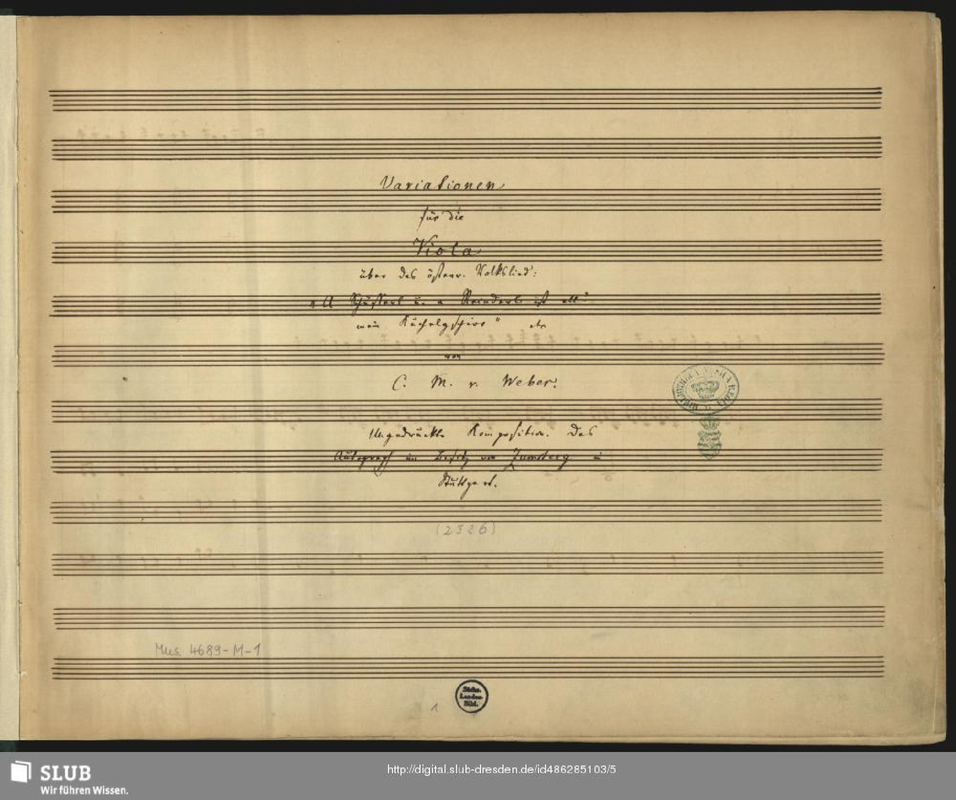 Variationen
für die
Viola
über das österr. Volkslied:
„A Schüsserl u. a Reinderl ist all'
mein Küchelgschirr" etc
von
C. M. v. Weber.
Ungedruckte Komposition. Das
Autograph im Besitz von Zumsteeg in
Stuttgart.
(2326)
Mus. 4689-M-1
1
Sächs.
Landes-
Bibl.
SLUB
Wir führen Wissen.
http://digital.slub-dresden.de/id486285103/5